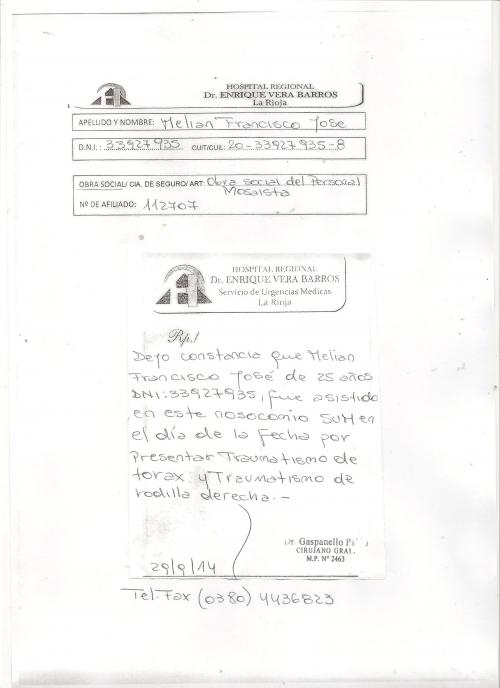 HOSPITAL REGIONAL
Dr. ENRIQUE VERA BARROS
La Rioja
APELLIDO Y NOMBRE: Melian Francisco Jose
D.N.I.: 33927935 CUIT/CUIL: 20-33927935-8
OBRA SOCIAL/ CIA. DE SEGURO/ ART: Obra social del Personal
Mosaista
Nº DE AFILIADO: 112707
HOSPITAL REGIONAL
Dr. ENRIQUE VERA BARROS
Servicio de Urgencias Medicas
La Rioja
Rp./
Dejo constancia que Melian
Francisco José de 25 años
DNI: 33927935, fue asistido
en este nosocomio SUM en
el día de la fecha por
Presentar Traumatismo de
torax y Traumatismo de
rodilla derecha.-
Dr Gaspanello
CIRUJANO GRAL.
M.P. Nº 2463
29/9/14
Tel-Fax (0380) 4436823